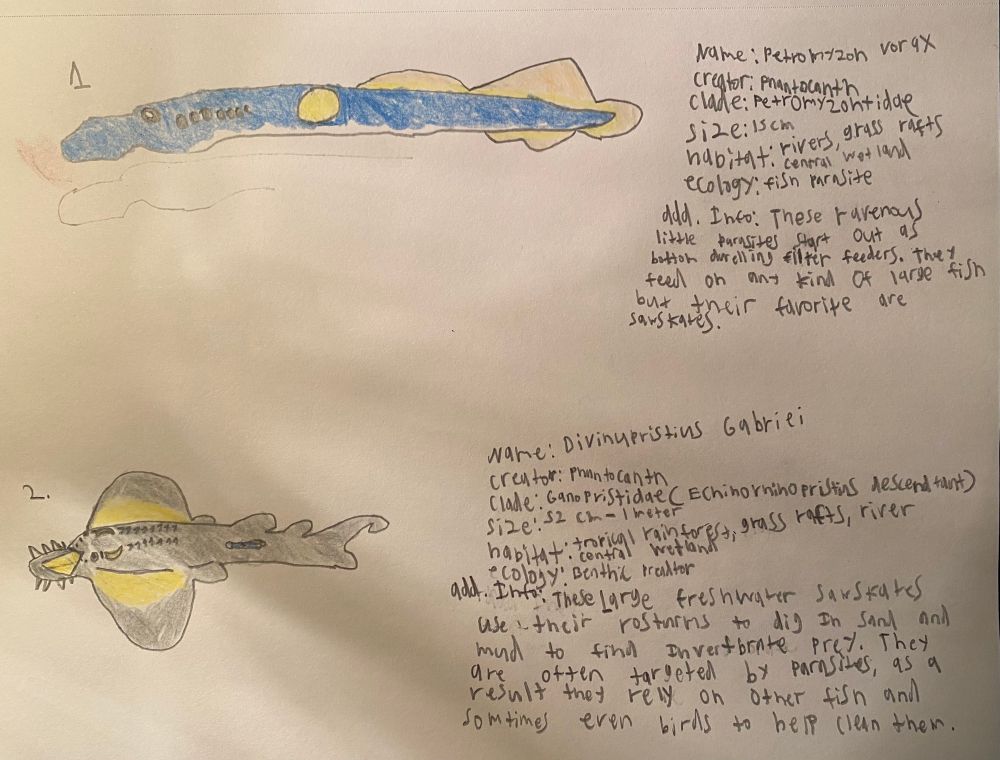 1
Name: Petromyzon vorax
creator: Phantocanth
clade: Petromyzontidae
size: 15cm
habitat: rivers, grass rafts
central wetland
ecology: fish parasite
add. Info: These ravenous
little parasites start out as
bottom dwelling filter feeders. They
feed on any kind of large fish
but their favorite are
sawskates.
2.
Name: Divinupristius Gabriei
creator: Phantocanth
clade: Ganopristidae (Echinorhinopristius descendtant)
size: 52 cm - 1 meter
habitat: tropical rainforest, grass rafts, river
central wetland
ecology: Benthic preaitor
add. Info: These Large freshwater sawskates
use their rosturms to dig In sand and
mud to find Invertbrate prey. They
are often targeted by parasites, as a
result they rely on other fish and
somtimes even birds to help clean them.